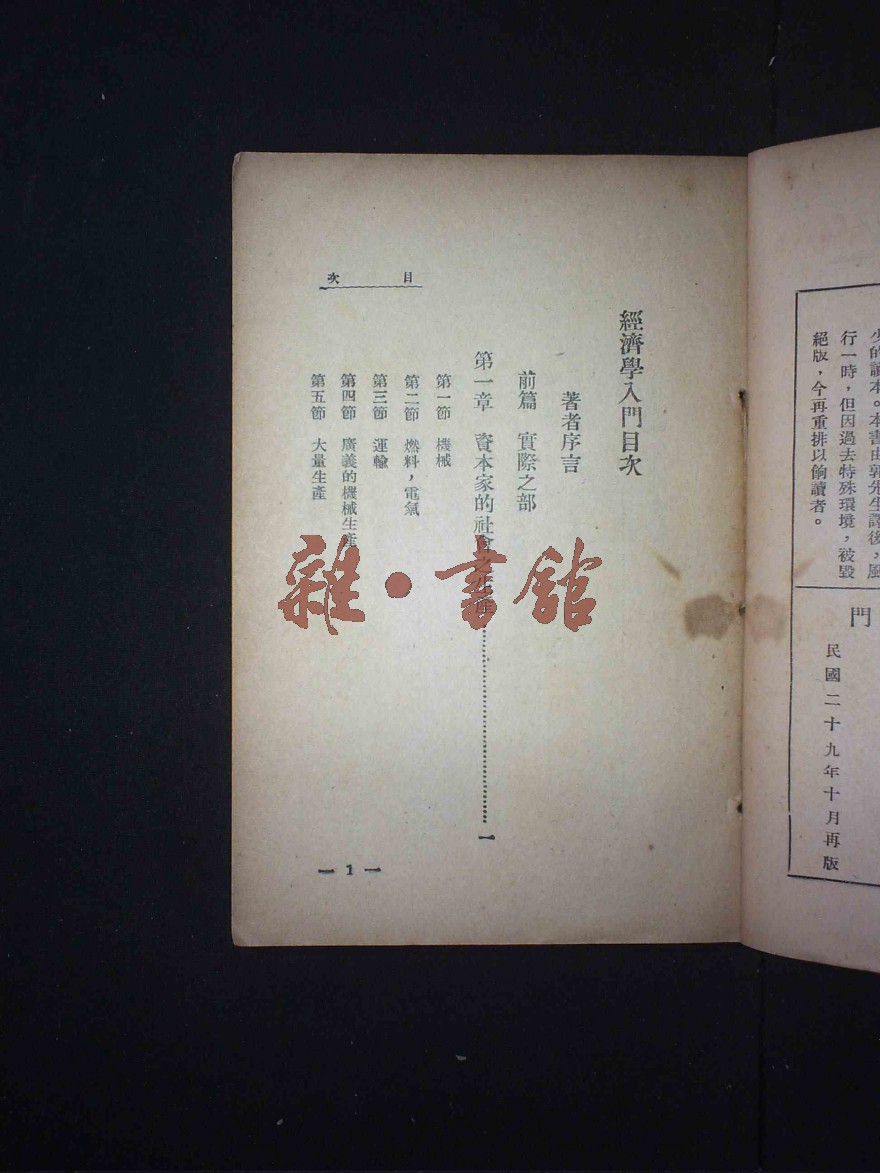 少的讀本。本書由郭先生譯後，風
行一時，但因過去特殊環境，被毀
絕版，今再重排以餉讀者。
門
民國二十九年十月再版
目次
經濟學入門目次
著者序言
前篇　實際之部
第一章　資本家的社會之生產……………………一
第一節　機械
第二節　燃料，電氣
第三節　運輸
第四節　廣義的機械生產
第五節　大量生產
— 1 —
雜·書館